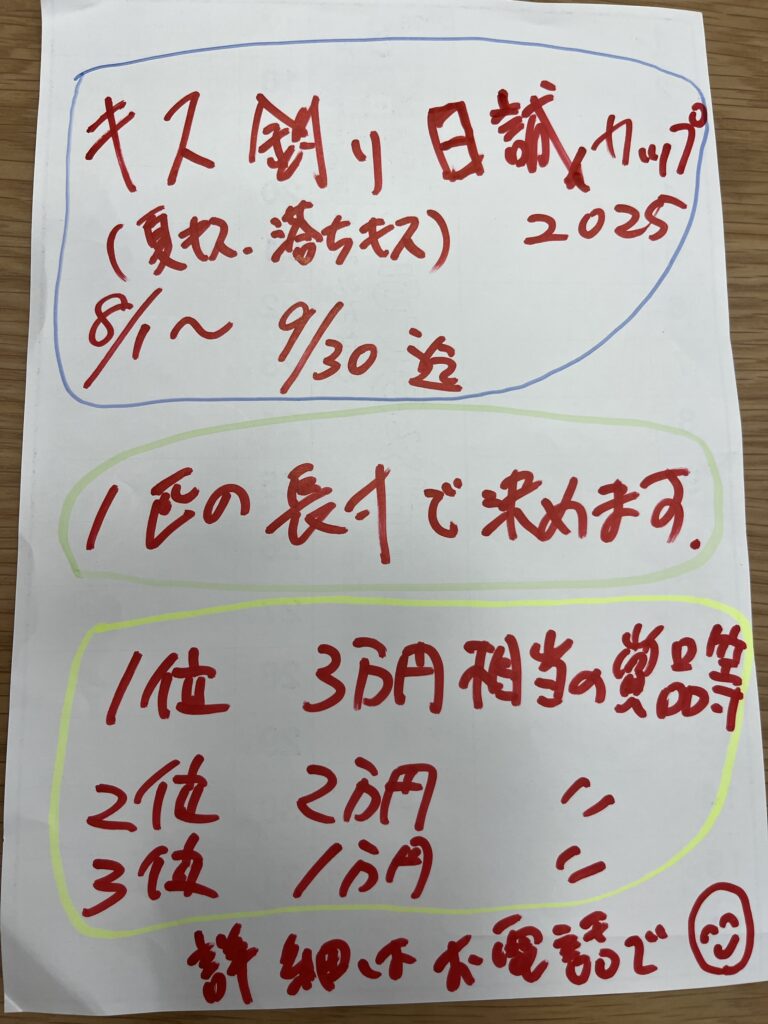 キス釣り日誠カップ
(夏キス.落ちキス) 2025
8/1〜9/30迄
1匹の長寸で決めます.
1位 3万円相当の賞品等
2位 2万円 〃
3位 1万円 〃
詳細はお電話で